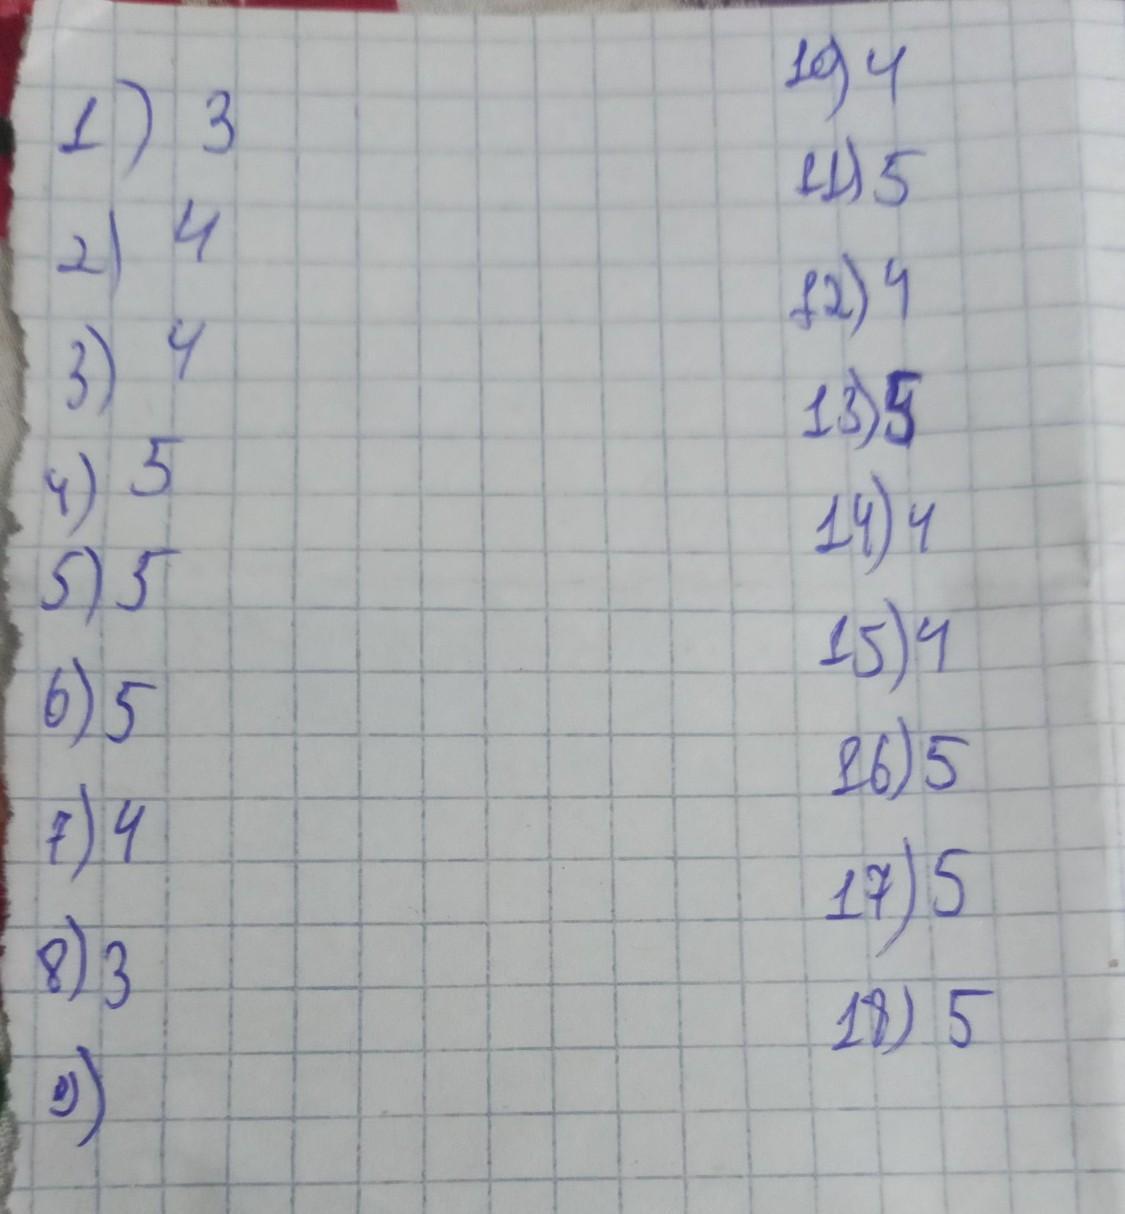 1) 3
2) 4
3) 4
4) 5
5) 5
6) 5
7) 4
8) 3
9)
10) 4
11) 5
12) 4
13) 5
14) 4
15) 4
16) 5
17) 5
18) 5